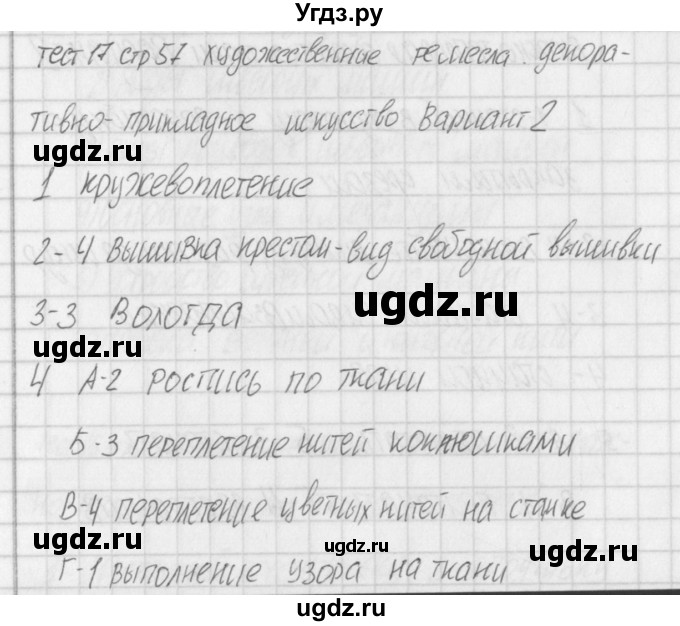 Угдз.ру
тест 17 стр 57 художественные ремесла. декора-
тивно-прикладное искусство Вариант 2
ugdz.ru
1 кружевоплетение
2-4 вышивка крестом-вид свободной вышивки
ugdz.ru
3-3 Вологда
ugdz.ru
4 А-2 роспись по ткани
Б-3 переплетение нитей коклюшками
В-4 переплетение цветных нитей на станке
ugdz.ru ugdz.ru
Г-1 выполнение узора на ткани
ugdz.ru